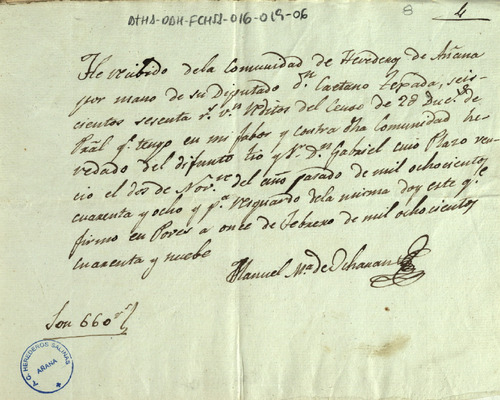 ATHA-DAH-FCHSA-016-019-06
8
4
He recibido dela Comunidad de Herederos de Añana
por mano de su Diputado Dn. Caetano Tejada, seis-
cientos sesenta rs. vn. réditos del Censo de 2000 Duc.s de
Pral qe. tengo en mi fabor y contra dha Comunidad he-
redado del difunto tio y Sr. Dn. Gabriel cuio Plazo ven-
cio el dos de Nov.re del año pasado de mil ochocientos
cuarenta y ocho y pa. resguardo dela misma doy este qe.
firmo en Poves a once de Febrero de mil ochocientos
cuarenta y nuebe
Manuel Ma. de Ocharan
Son 660 rs.
A. C. HEREDEROS SALINAS
AÑANA